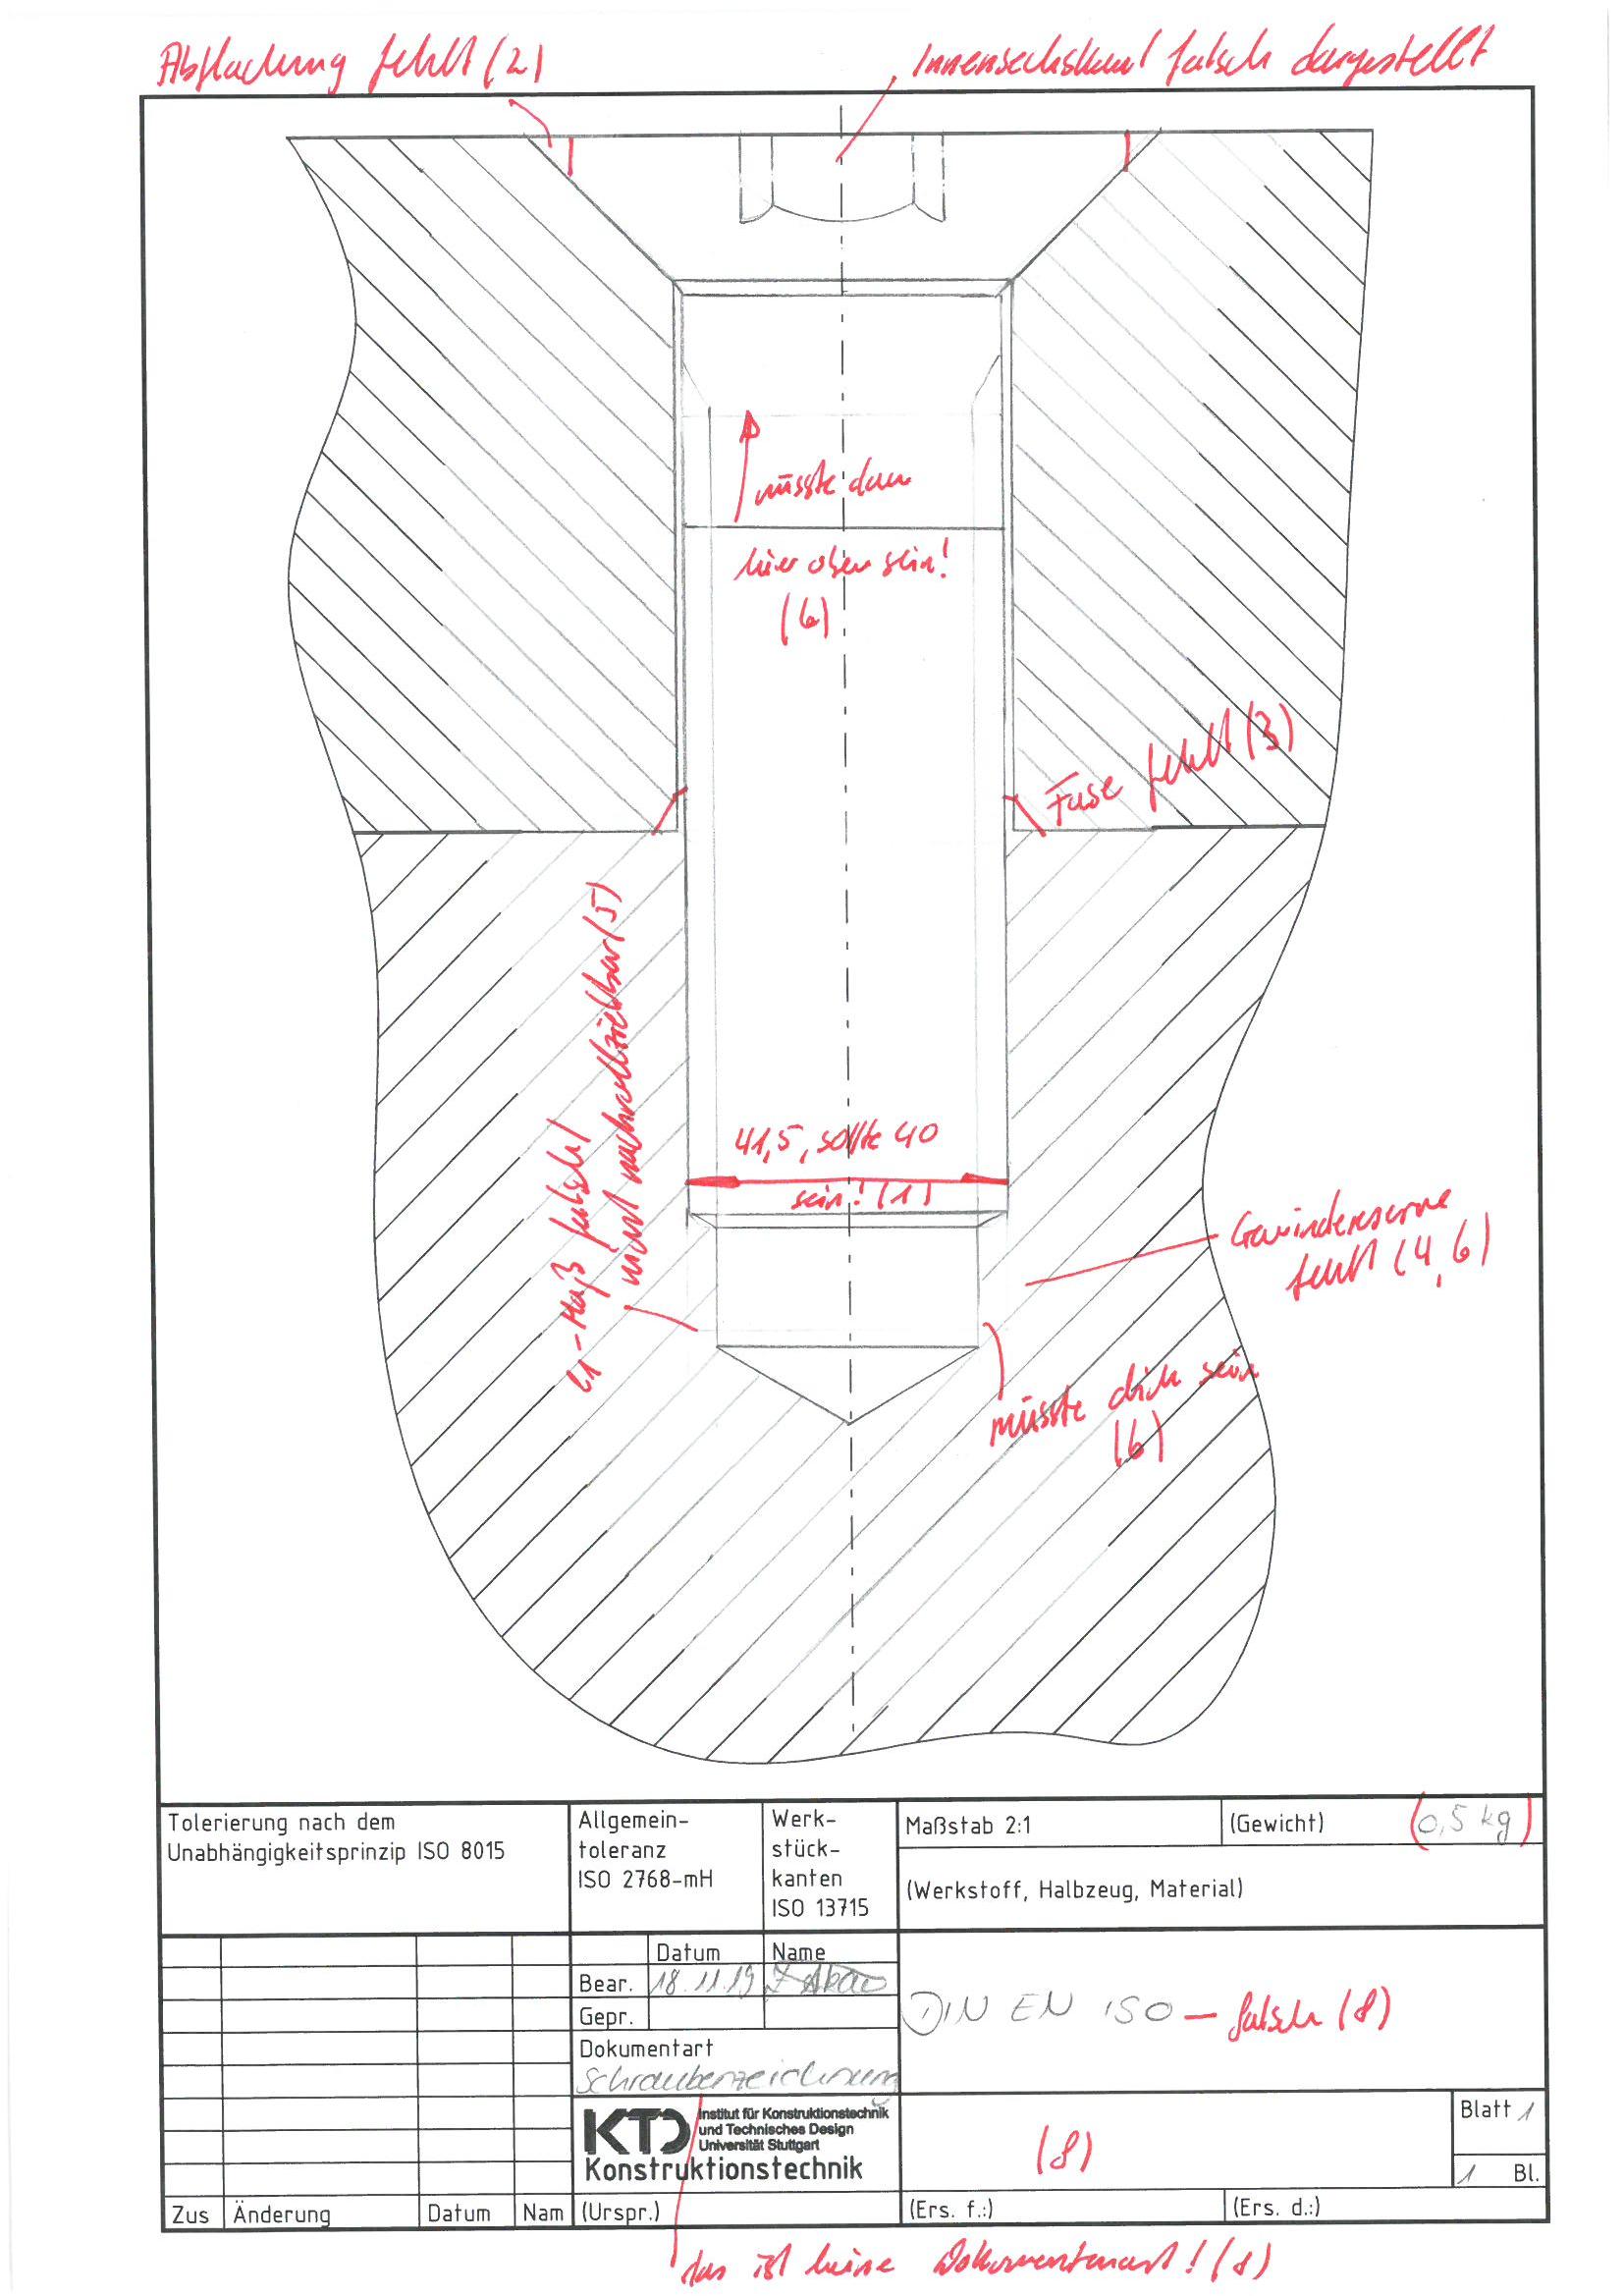 Abflachung fehlt (2)
Innensechskant falsch dargestellt
müsste dann
hier oben sein!
(6)
Fase fehlt (3)
l1-Maß falsch /
nicht nachvollziehbar (5)
41,5, sollte 40
sein! (1)
Gewindereserve
fehlt (4,6)
müsste dick sein
(6)
Tolerierung nach dem
Unabhängigkeitsprinzip ISO 8015
Allgemein-
toleranz
ISO 2768-mH
Werk-
stück-
kanten
ISO 13715
Maßstab 2:1
(Gewicht)
(0,5 kg)
(Werkstoff, Halbzeug, Material)
Datum
Name
Bear. 18.11.19
Gepr.
DIN EN ISO — falsch (8)
Dokumentart
Schraubenzeichnung
KTD
Institut für Konstruktionstechnik
und Technisches Design
Universität Stuttgart
Konstruktionstechnik
(8)
Blatt 1
1 Bl.
Zus
Änderung
Datum
Nam
(Urspr.)
(Ers. f.:)
(Ers. d.:)
das ist keine Dokumentenart! (8)